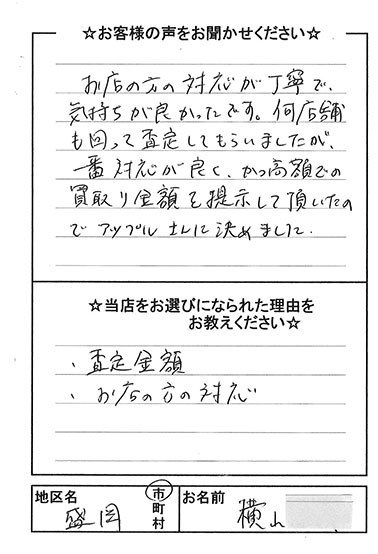 ☆お客様の声をお聞かせください☆
お店の方の対応が丁寧で、
気持ちが良かったです。何店舗
も回って査定してもらいましたが、
一番対応が良く、かつ高額での
買取り金額を提示して頂いたの
でアップルさんに決めました.
☆当店をお選びになられた理由を
お教えください☆
、査定金額
、お店の方の対応
地区名 盛岡 市町村 お名前 横山